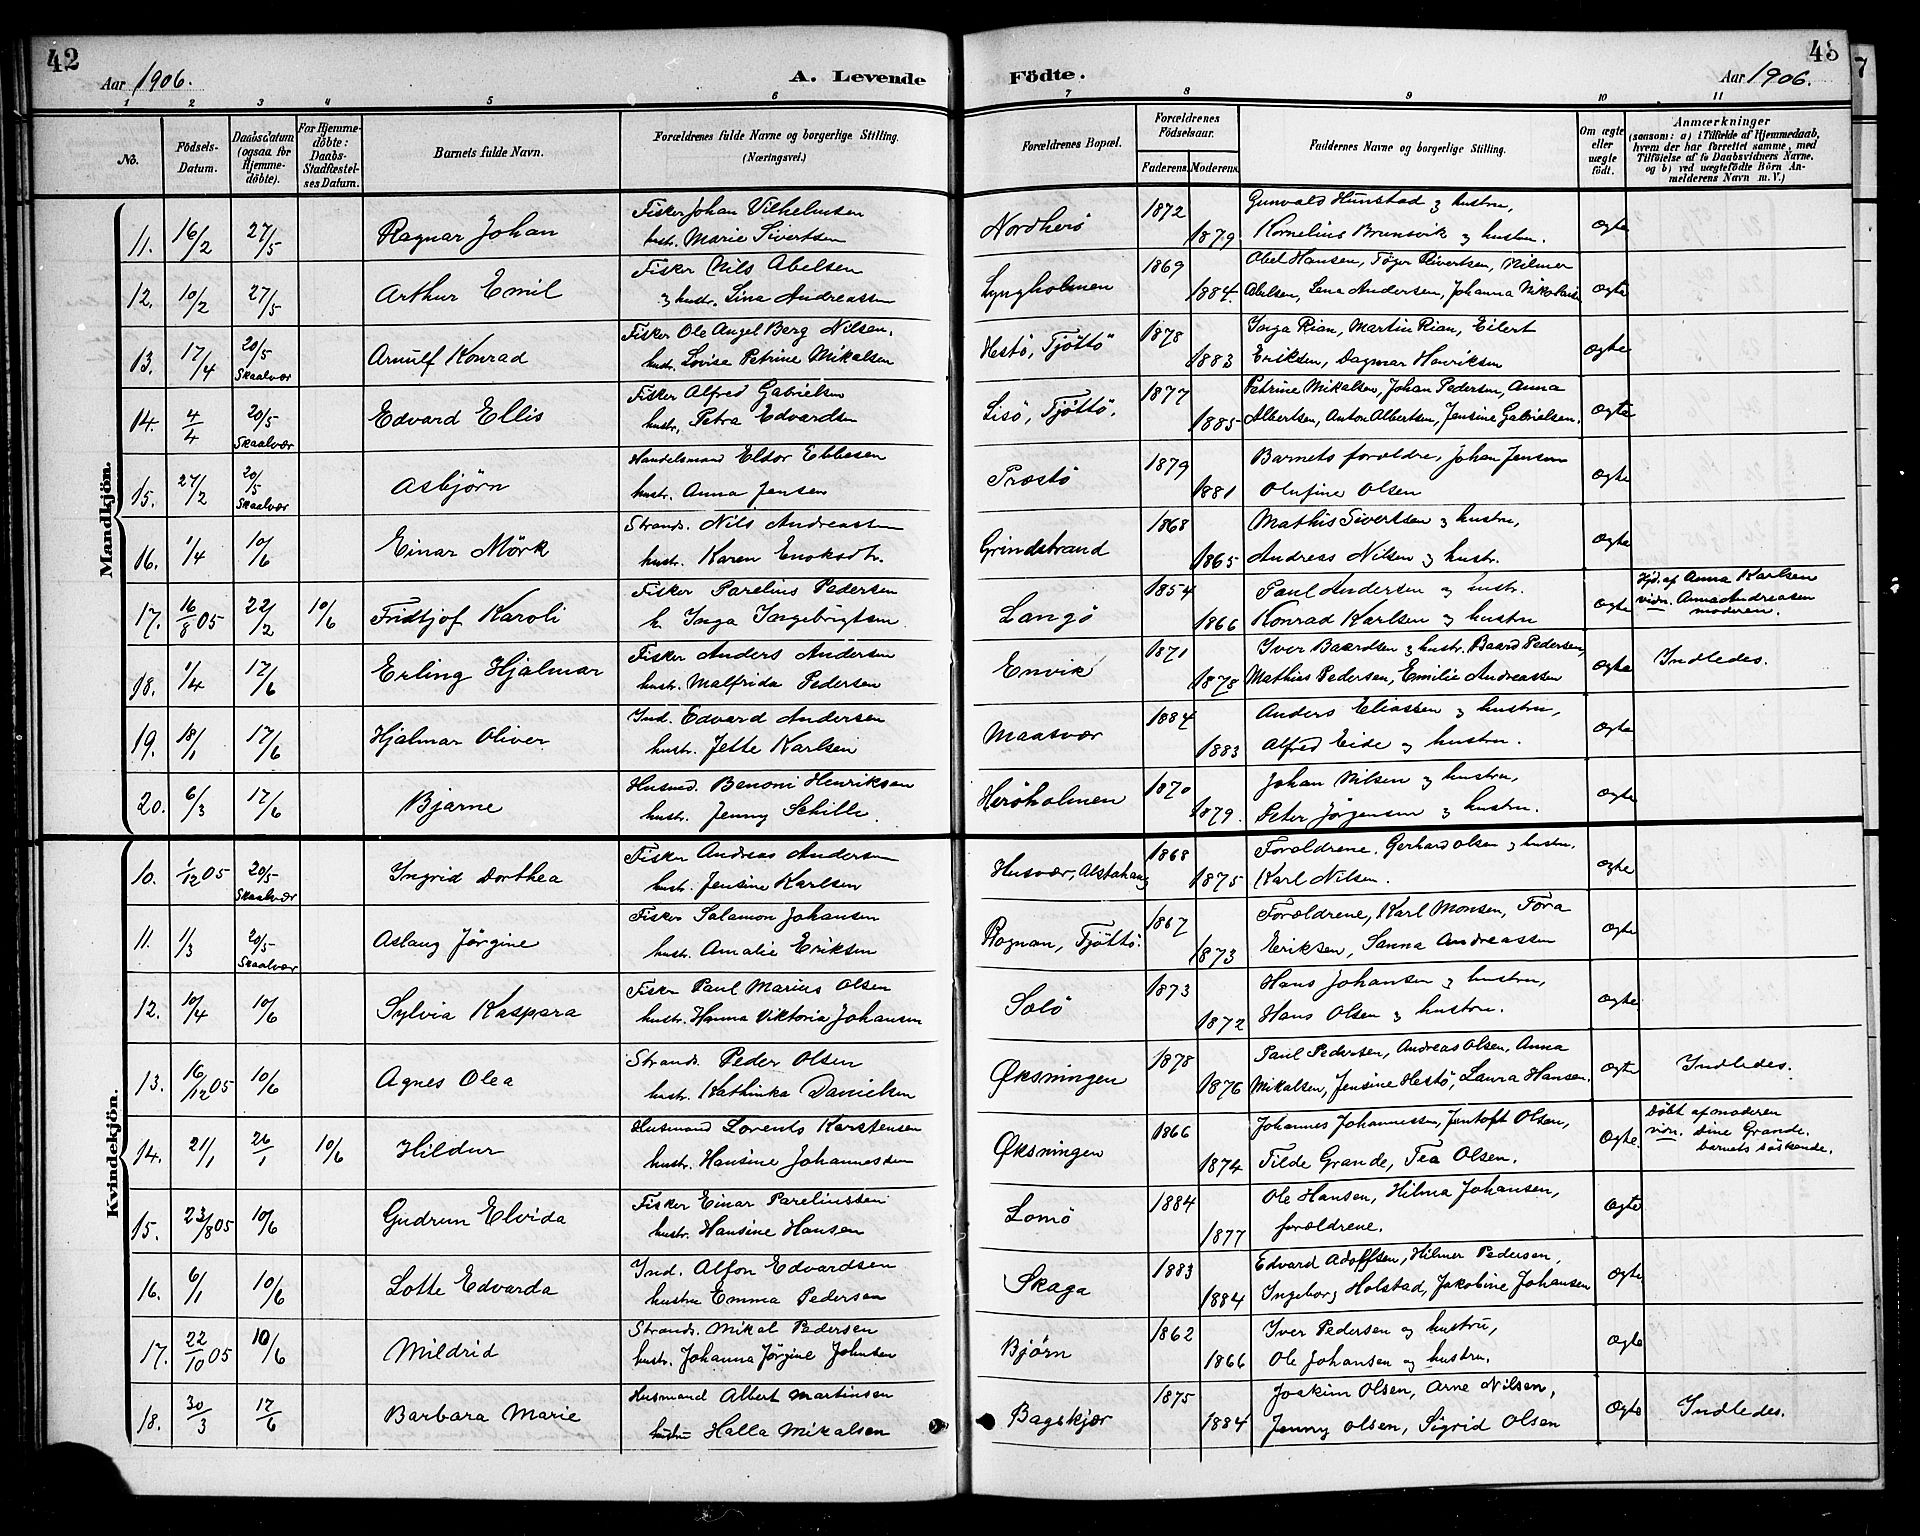 42
Aar 1906.
A. Levende
Födte.
Aar 1906.
43
1 2 3 4 5 6 7 8 9 10 11
No.
Födsels-Datum.
Daabsdatum (ogsaa for Hjemme-döbte).
For Hjemme-döbte: Daabs-Stadfæstel-ses Datum.
Barnets fulde Navn.
Forældrenes fulde Navne og borgerlige Stilling. (Næringsvei.)
Forældrenes Bopæl.
Forældrenes Födselsaar.
Faderens. Moderens.
Faddernes Navne og borgerlige Stilling.
Om ægte eller uægte födt.
Anmærkninger
(saasom: a) i Tilfælde af Hjemmedaab, hvem der har forrettet samme, med Tilföielse af to Daabsvidners Navne, og b) ved uægtefödte Börn An-melderens Navn m. V.)
Mandkjön.
11. 16/2 27/5 Ragnar Johan Fisker Johan Vilhelmsen Nordherö 1872 Gunvald Hunstad og hustru,
hustr. Marie Sivertsen 1879. Kornelius Brunsvik og hustru. Ægte
12. 10/2 27/5 Arthur Emil Fisker Nils Abelsen Lyngholmen 1869 Abel Hansen, Töger Sivertsen, Hilmer
og hustr. Lina Andreassen 1884. Abelsen, Lena Andersen, Johanna Nikolaisen Ægte
13. 17/4 20/5 Skaalvær Arnulf Konrad Fisker Ole Angel Berg Nilsen, Hestö, Tjöttö 1878 Inga Rian, Martin Rian, Eilert
hustr. Lovise Petrine Mikalsen 1883 Eriksen, Dagmar Henriksen Ægte
14. 4/4 20/5 Skaalvær Edvard Ellis Fisker Alfred Gabrielsen Lisö, Tjöttö. 1877 Petrine Mikalsen, Johan Pedersen, Anna
hustr. Petra Edvardsen 1885 Albertsen, Anton Albertsen, Jensine Gabrielsen. Ægte
15. 27/2 20/5 Skaalvær Asbjörn Handelsmand Eldor Ebbesen Prestö 1879 Barnets forældre, Johan Jensen
hustr. Anna Jensen 1881 Olufine Olsen Ægte
16. 1/4 10/6 Einar Mörk Strands. Nils Andreassen Grindstrand 1868 Mathis Sivertsen og hustru,
hustr. Karen Enoksdtr. 1865 Andreas Nilsen og hustr. Ægte
17. 16/8 05 22/2 10/6 Fridtjof Karoli Fisker Parelius Pedersen Langö 1854 Paul Andersen og hustr. Hjd. af Anna Karlsen
h Inga Ingebrigtsen 1866 Konrad Karlsen og hustru Ægte vidn. Anna Andreasen
moderen.
18. 1/4 17/6 Erling Hjalmar Fisker Anders Andersen Envik 1871 Iver Baardsen og hustr. Baard Pedersen, Indledes.
hustr. Malfrida Pedersen 1878 Mathias Pedersen, Emilie Andreassen Ægte
19. 18/1 17/6 Hjalmar Oliver Ind. Edvard Andersen Maasvær 1884 Anders Eliassen og hustru,
hustr. Jette Karlsen 1883 Alfred Eide og hustru. Ægte
20. 6/3 17/6 Bjarne Husmd. Benoni Henriksen Heröholmen 1870 Johan Nilsen og hustru,
hustr. Jenny Schille. 1879. Peter Jörgensen og hustru. Ægte
Kvindekjön.
10. 1/12 05 20/5 Skaalvær Ingrid Dorthea Fisker Andreas Andersen Husvær, Alstahaug 1868 Forældrene. Gerhard Olsen og hustru.
hustr. Jensine Karlsen 1875 Karl Nilsen. Ægte
11. 1/3 20/5 Skaalvær Aslaug Jörgine Fisker Salamon Johansen Rognan, Tjöttö. 1867 Forældrene, Karl Monsen, Tora
hustr. Amalie Eriksen 1873 Eeriksen, Sanna Andreassen Ægte
12. 10/4 10/6 Sylvia Kaspara Fisker Paul Marius Olsen Solö 1873 Hans Johansen og hustru,
hustr. Hanna Viktoria Johansen 1872 Hans Olsen og hustru. Ægte
13. 16/12 05 10/6 Agnes Olea Strands. Peder Olsen Øksningen 1878 Paul Pedersen, Andreas Olsen, Anna
hustr. Kathinka Danielsen 1876 Mikalsen, Jensine Hestö, Laura Hansen. Ægte Indledes.
14. 21/1 26/1 10/6 Hildur Husmand Lorents Karstensen Øksningen 1866 Johannes Johannessen, Jentoft Olsen, Döbt af moderen
hustr. Hansine Johannessen 1874 Tilde Grande, Tea Olsen. Ægte vidn. Sine Grande.
barnets söskende.
15. 23/8 05 10/6 Gudrun Elvida Fisker Einar Pareliussen Lomö 1884 Ole Hansen, Hilma Johansen,
hustr. Hansine Hansen 1877 forældrene. Ægte
16. 6/1 10/6 Lotte Edvarda Ind. Alfon Edvardsen Skaga 1883 Edvard Adolfsen, Hilmer Pedersen,
hustru Emma Pedersen 1884 Ingeborg Holstad, Jakobine Johansen Ægte
17. 22/10 05 10/6 Mildrid Strands. Mikal Pedersen Bjørn 1862 Iver Pedersen og hustru,
hustr. Johanna Jörgine Johnsen 1866 Ole Johansen og hustru. Ægte
18. 30/3 17/6 Barbara Marie Husmand Albert Martinsen Bagskjær 1875 Joakim Olsen, Arne Nilsen,
hustru Halla Mikalsen 1884 Jenny Olsen, Sigrid Olsen Ægte Indledes.